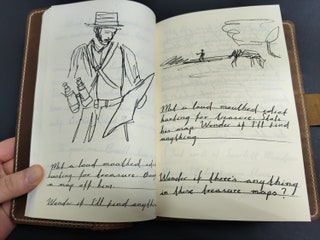 Met a loud mouthed idi
hunting for treasure. Boug
a map off him.
Wonder if I'll find anythin
Met a loud mouthed idiot
hunting for treasure. Stole
his map. Wonder if I'll find
anything
Wonder if there's anything
in these treasure maps?